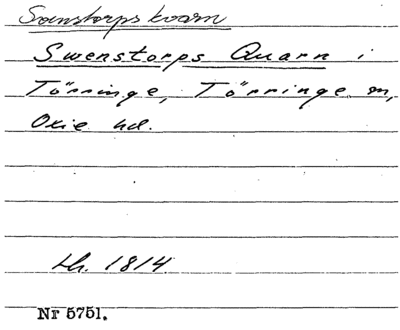 Svenstorps kvarn
Swenstorps Quarn i
Törringe, Törringe sn,
Oxie hd.
Lh. 1814
Nr 5751.